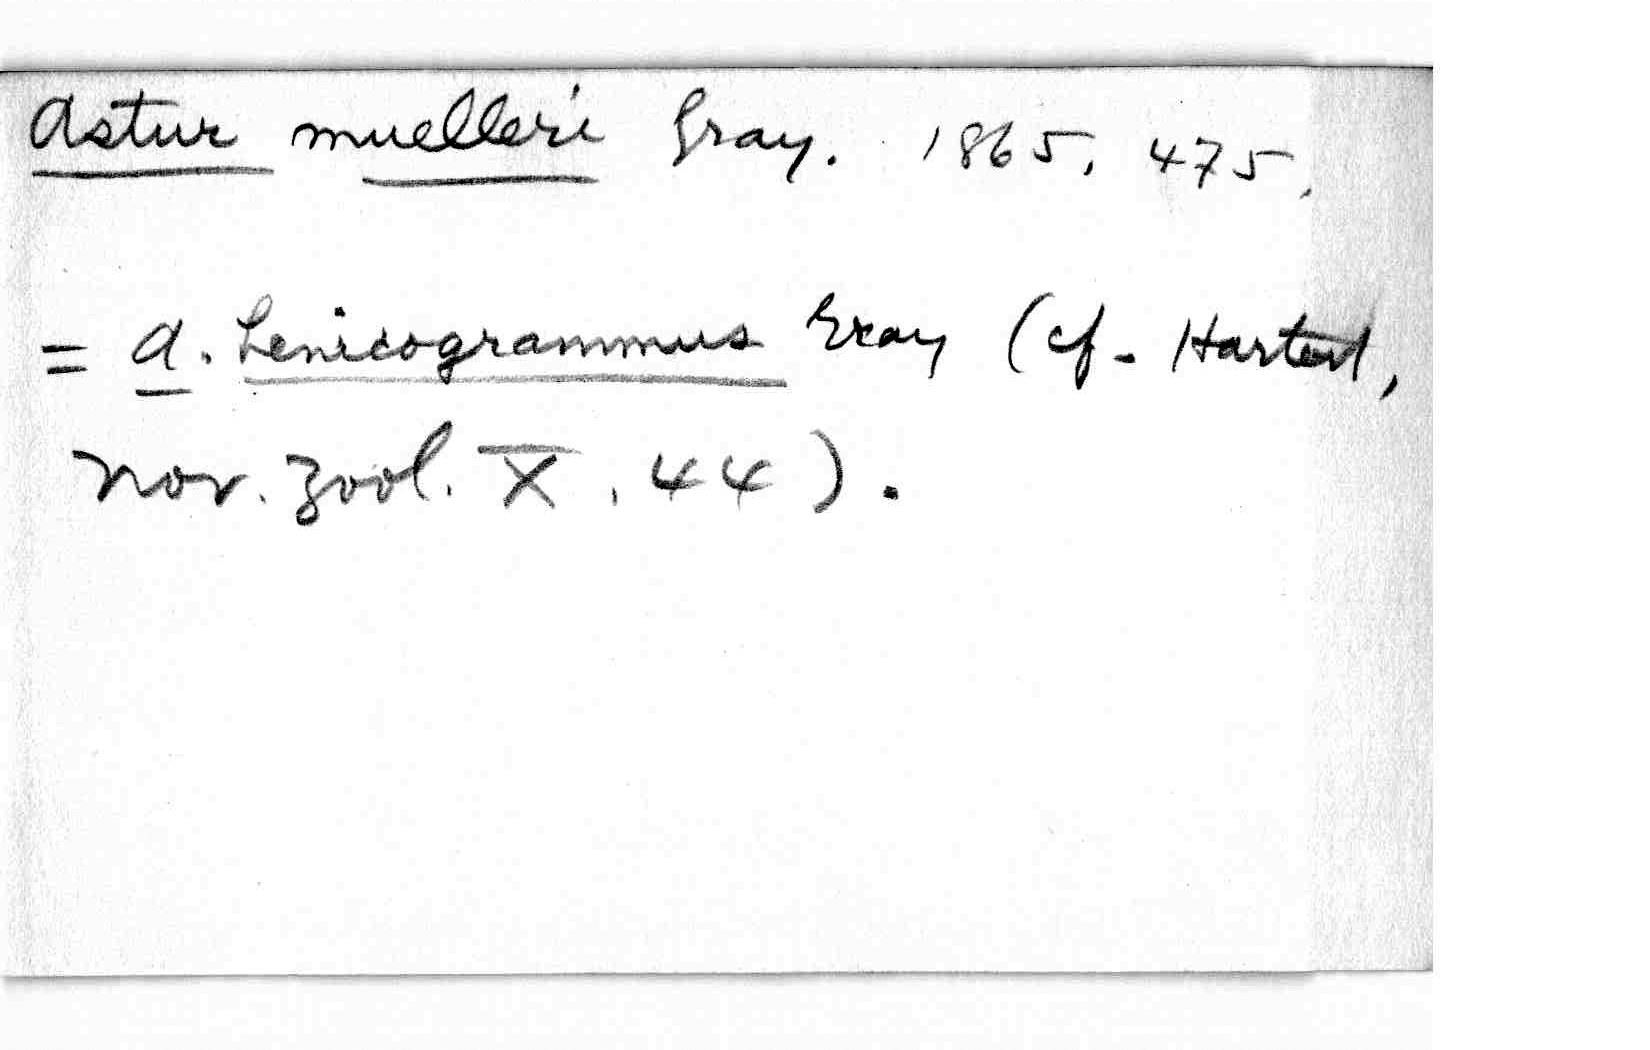 Astur muelleri Gray. 1865, 475,
= A. henicogrammus Gray (cf. Hartert,
Nov. Zool. X, 44).